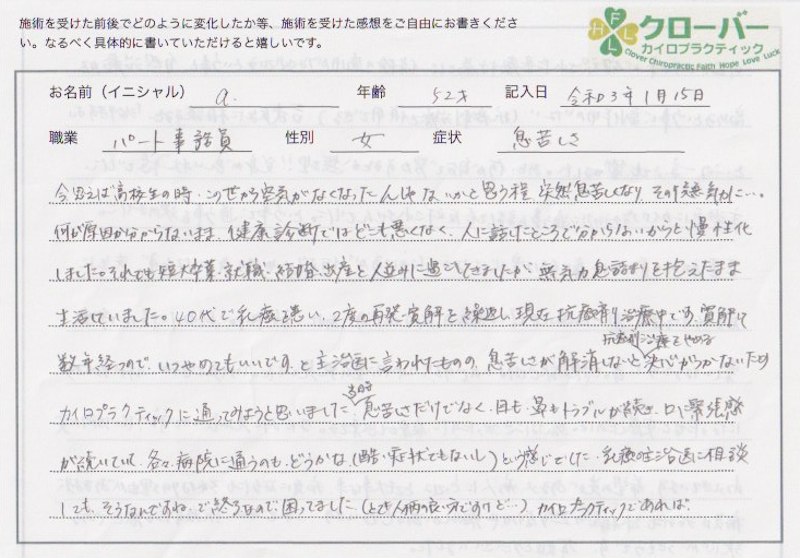 施術を受けた前後でどのように変化したか等、施術を受けた感想をご自由にお書きくださ
い。なるべく具体的に書いていただけると嬉しいです。
FHLL
クローバー
カイロプラクティック
Clover Chiropractic Faith Hope Love Luck
お名前(イニシャル) a. 年齢 52才 記入日 令和3年1月15日
職業 パート事務員 性別 女 症状 息苦しさ
今思えば高校生の時、この世から空気がなくなったんじゃないかと思う程、突然息苦しくなり、その後
何が原因か分からないまま、健康診断ではどこも悪くなく、人に話したところで分からないからと慢性化
しました。それでも短大卒業・就職・結婚・出産と人並みに過ごしてきましたが、無気力、息詰りを抱えたまま
生活していました。40代で乳癌を患い、2度の再発・寛解を繰返し、現在抗癌剤治療中です。寛解して
数年経つので、いつやめてもいいですと主治医に言われたものの、息苦しさが解消しないと決心がつかないため
抗癌剤治療をやめる
カイロプラクティックに通ってみようと思いました。息苦しさだけでなく、目も鼻もトラブルが続き、口に緊張感
が続いていて、各々病院に通うのも、どうかな(酷い症状でもないし)という感じでした。乳癌の主治医に相談
しても、そうなんですね、で終るので困ってました(とても人柄の良い方ですけど…)カイロプラクティックであれば、